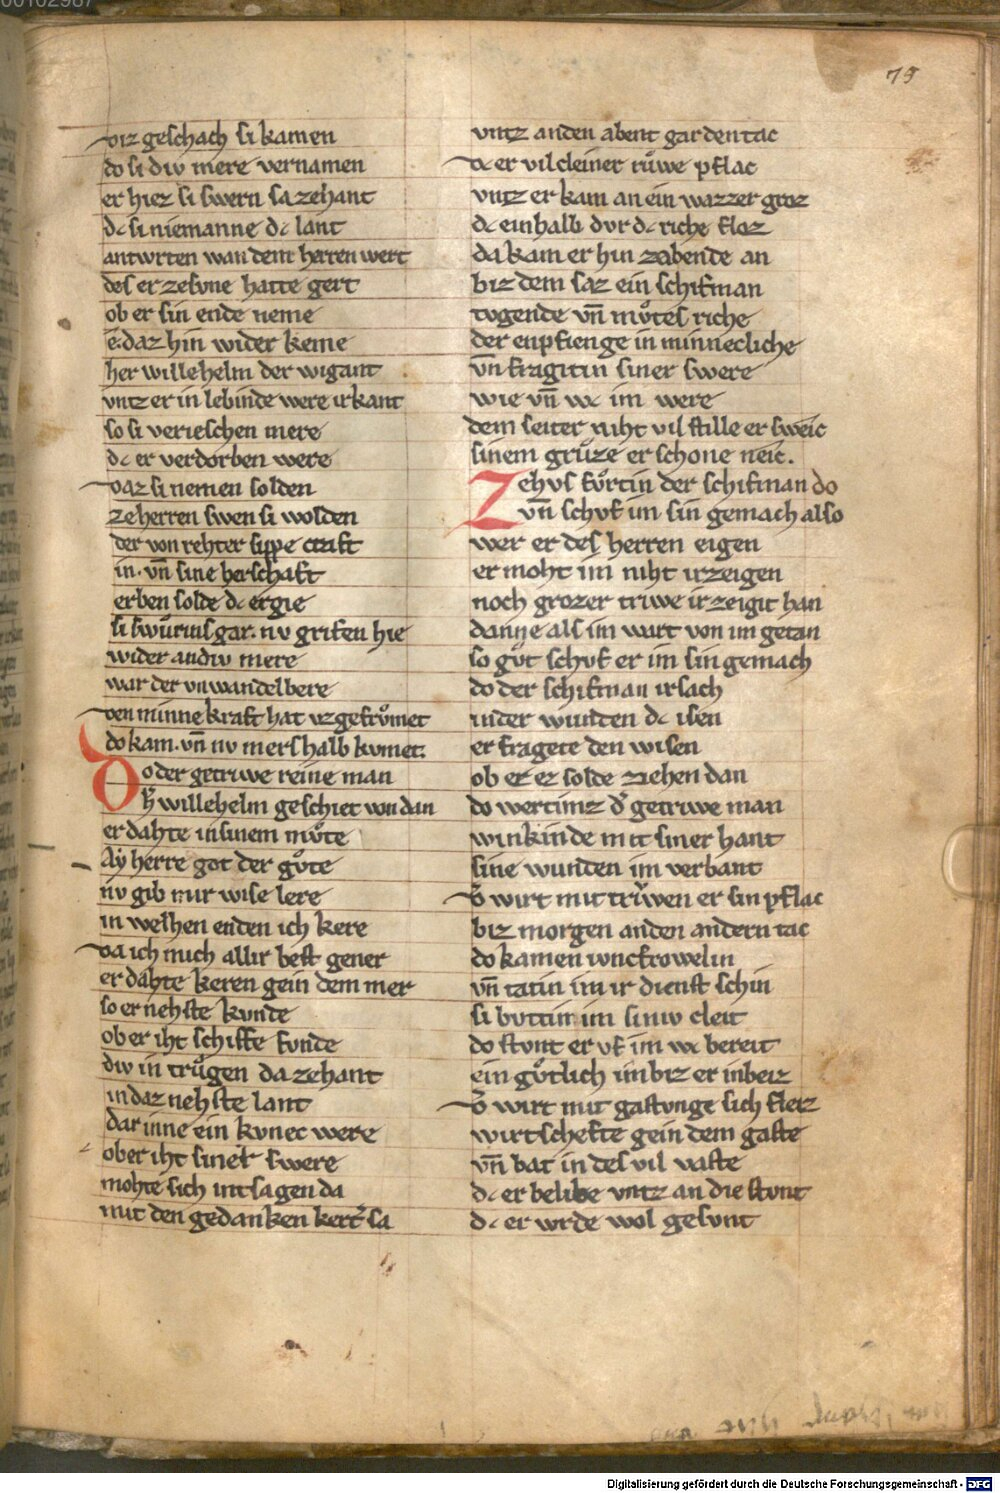 00102987
75
diz geschach si kamen
do si diu mere vernamen
er hiez si swern sa zehant
dc si niemanne dc lant
antwrten wan dem herren wert
des er zesvne hatte gert
ob er sin ende neme
e daz hin wider keme
her willehelm der wigant
vntz er in lebinde were irkant
so si verieschen mere
dc er verdorben were
daz si nemen solden
ze herren swen si wolden
der von rehter sippe craft
in. vn̄ sine herschaft
erben solde dc ergie
si swůrins gar. nv grifen hie
wider an div mere
war der vnwandelbere
den minne kraft hat vz gefrůmet
do kam. vn̄ nv mershalb kvmet.
Do der getriwe reine man
h̄ willehelm geschiet von dan
er dahte in sinem můte
Aẏ herre got der gůte
nv gib mir wise lere
in welhen enden ich kere
da ich mich allir best gener
er dahte keren gein dem mer
so er nehste kvnde
ob er iht schiffe fvnde
div in trůgen da zehant
in daz nehste lant
dar inne ein kvnec were
ob er iht siner swere
mohte sich intsagen da
mit den gedanken kert̾ sa
vntz an den abent gar den tac
dc er vil cleiner růwe pflac
vntz er kam an ein wazzer groz
dc einhalb dvr dc riche floz
da kam er hin zabende an
biz dem saz ein schifman
tvgende vn̄ můtes riche
der enpfienge in minnecliche
vn̄ fragit in siner swere
wie vn̄ wc im were
dem seiter niht vil stille er sweic
sinem grůze er schone neic.
Ze hvs fůrt in der schifman do
vn̄ schvf im sin gemach also
wer er des herren eigen
er moht im niht irzeigen
noch grozer triwe irzeigit han
danne als im wart von im getan
so gůt schvf er im sin gemach
do der schifman irsach
in der wunden dc isen
er fragete den wisen
ob er ez solde ziehen dan
do wertimz d̾ getriwe man
winkinde mit siner hant
sine wunden im verbant
d̾ wirt mit trẘen er sin pflac
biz morgen an den andern tac
do kamen ivncfrowelin
vn̄ tatin im ir dienst schin
si bvttin im siniv cleit
do stvnt er vf im wc bereit
ein gůtlich imbiz er inbeiz
d̾ wirt mit gastvnge sich fleiz
wirtschefte gein dem gaste
vn̄ bat in des vil vaste
dc er belibe vntz an die stvnt
dc er wrde wol gesvnt
Digitalisierung gefördert durch die Deutsche Forschungsgemeinschaft - DFG